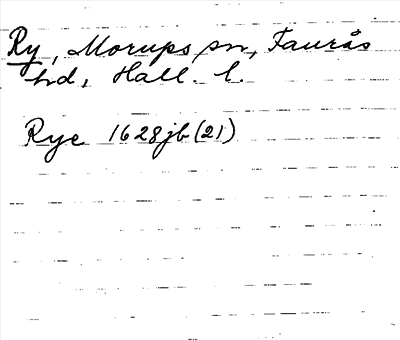 Ry, Morups sn, Faurås
hd, Hall. l.
Rye 1628jb(21)